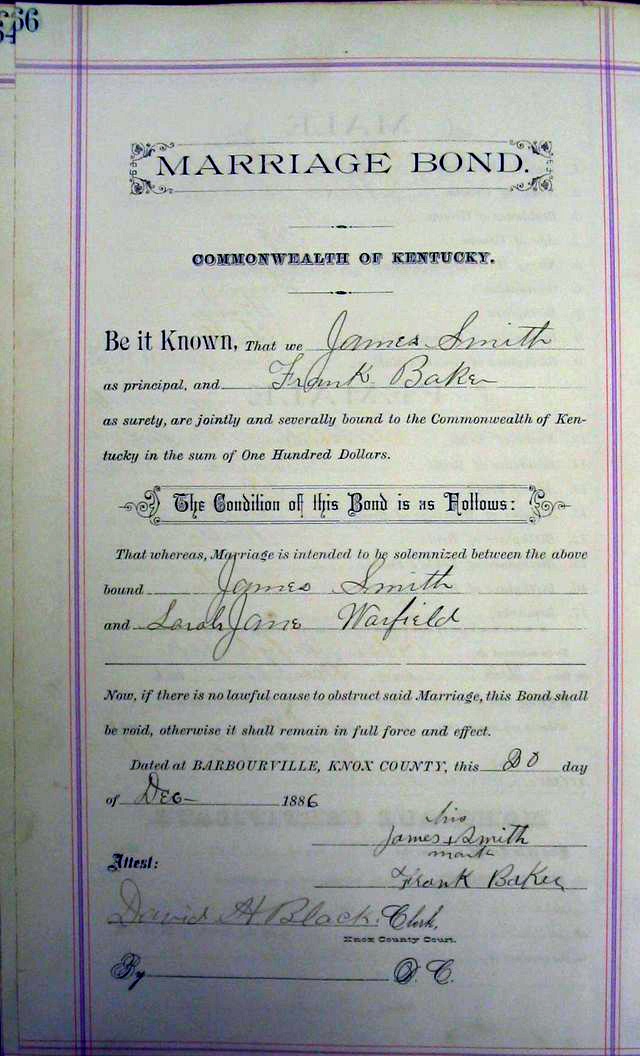 66
MARRIAGE BOND.
COMMONWEALTH OF KENTUCKY.
Be it Known, That we James Smith
as principal, and Frank Baker
as surety, are jointly and severally bound to the Commonwealth of Ken-
tucky in the sum of One Hundred Dollars.
The Condition of this Bond is as Follows:
That whereas, Marriage is intended to be solemnized between the above
bound James Smith
and Sarah Jane Warfield
Now, if there is no lawful cause to obstruct said Marriage, this Bond shall
be void, otherwise it shall remain in full force and effect.
Dated at BARBOURVILLE, KNOX COUNTY, this 20 day
of Dec 1886
his
James + Smith
mark
Attest:
Frank Baker
David H Black, Clerk,
Knox County Court.
By D. C.